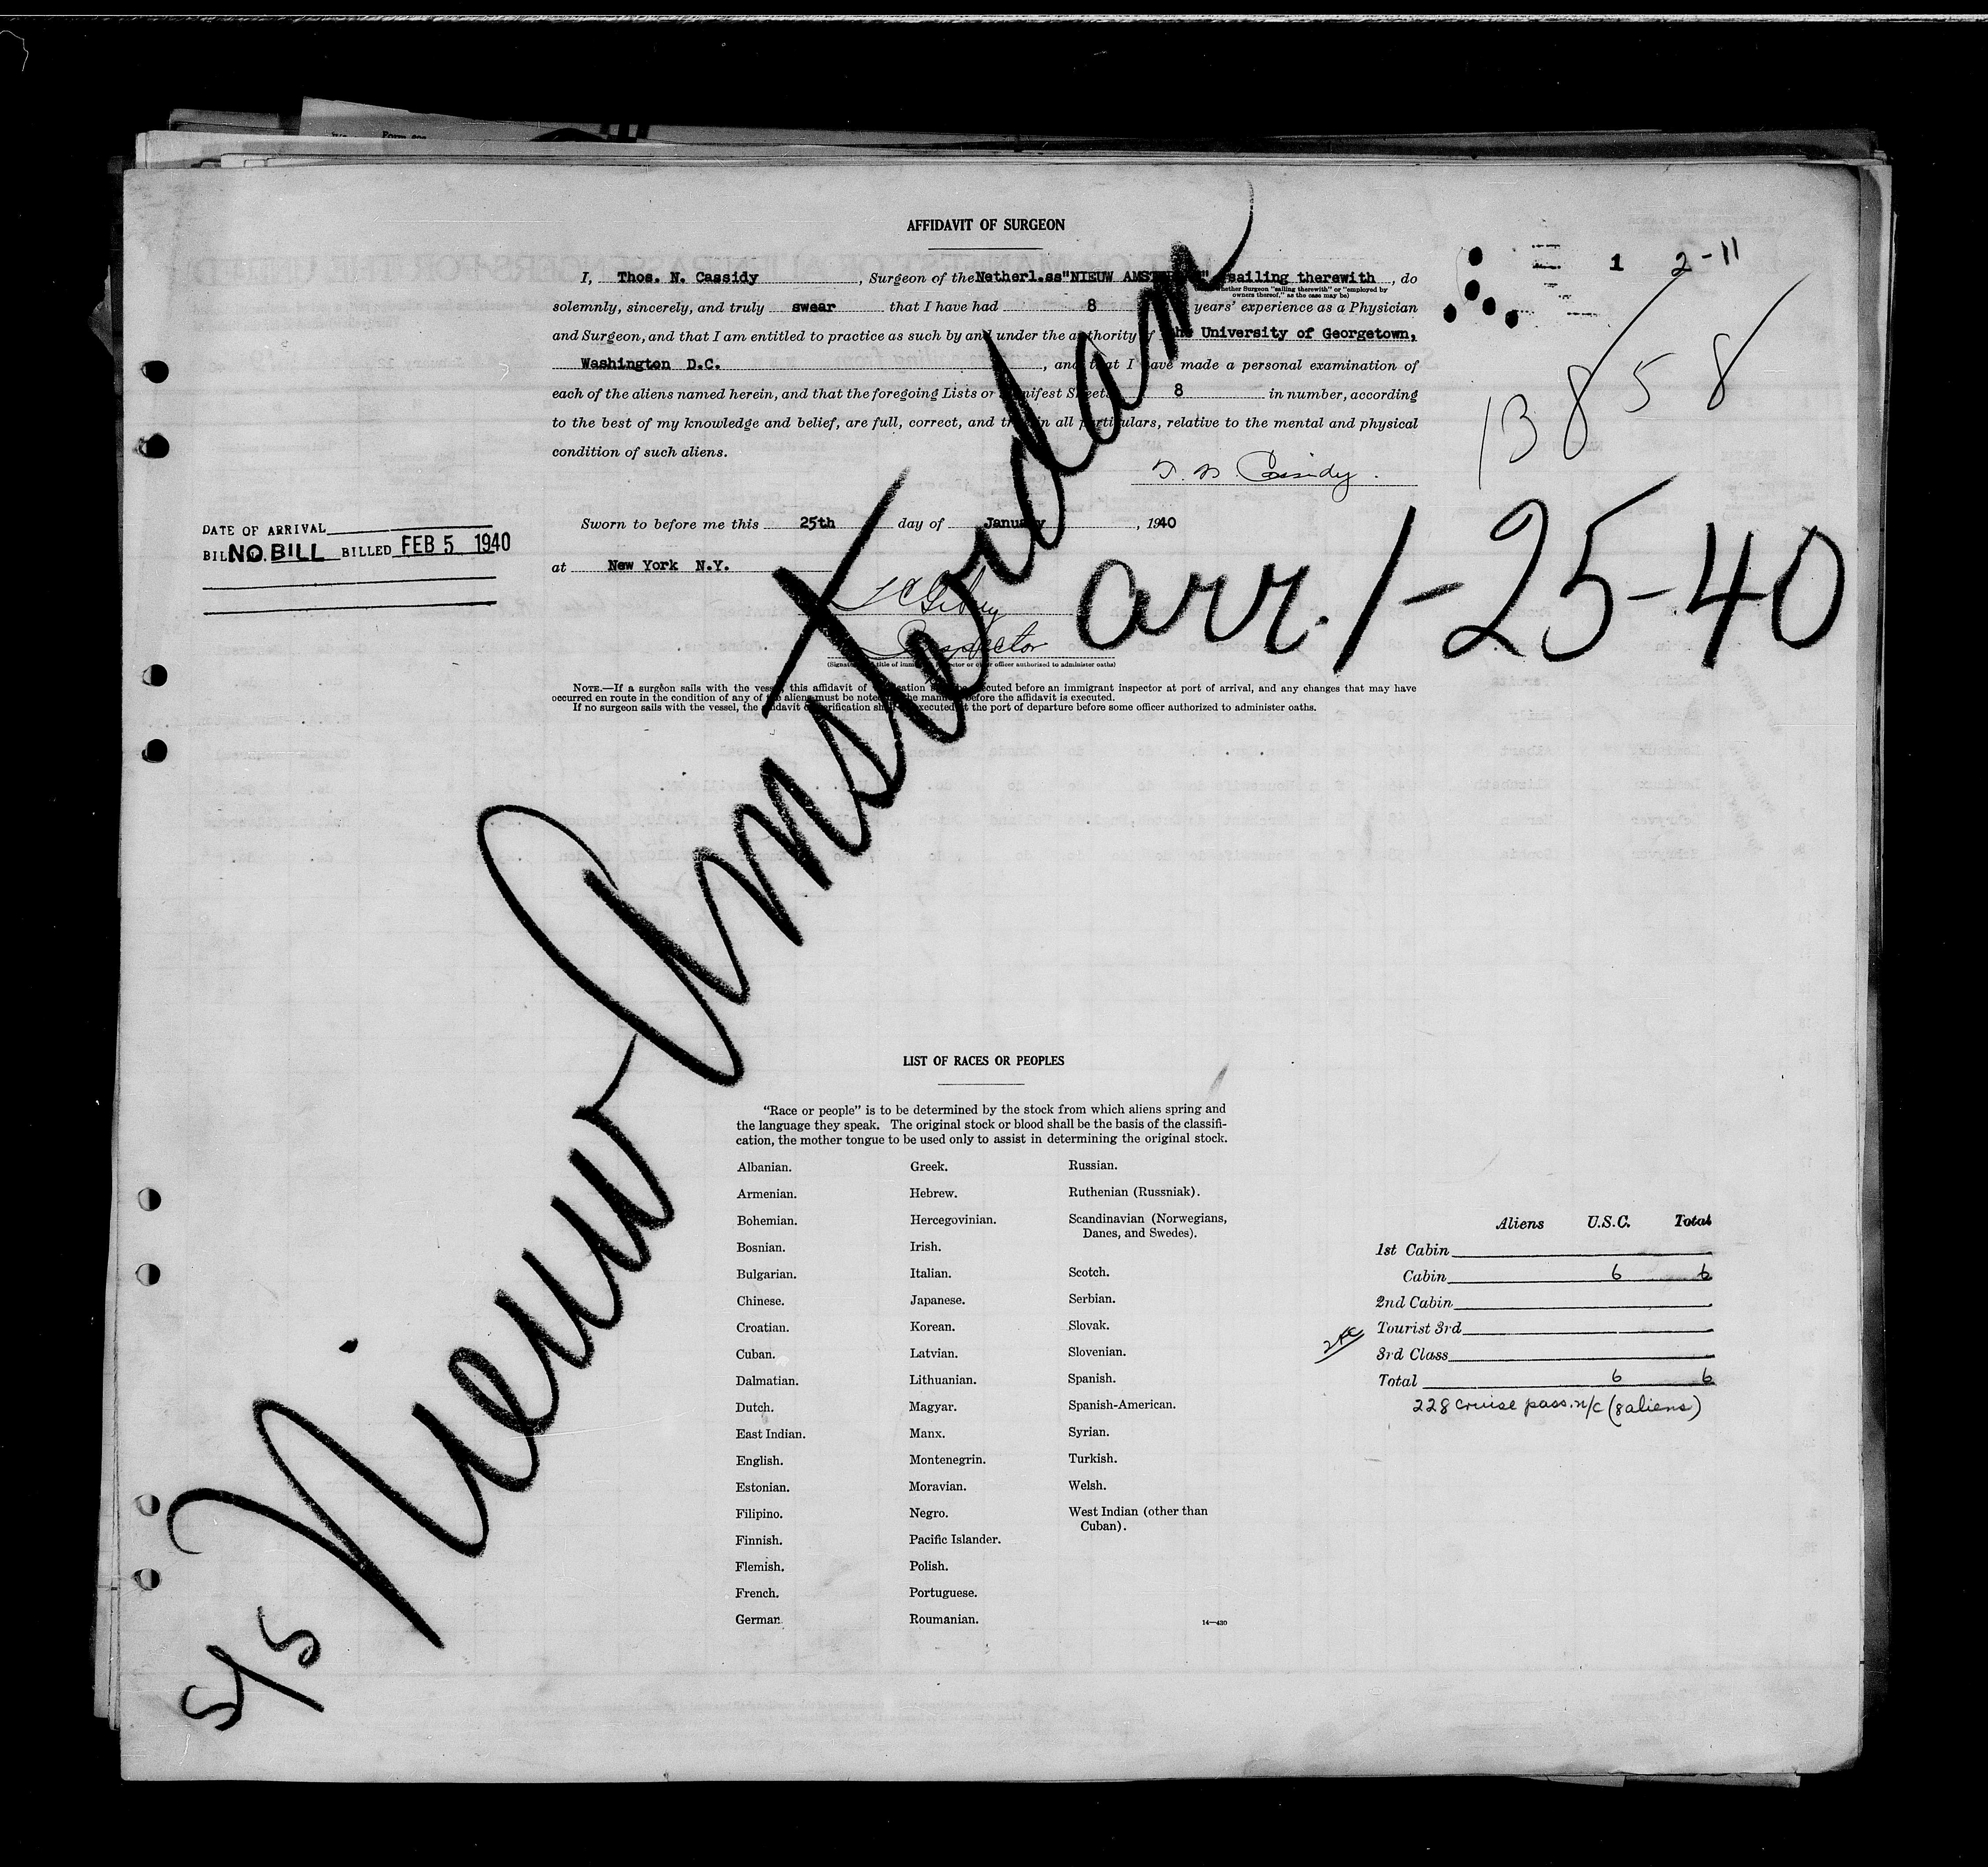 AFFIDAVIT OF SURGEON
I, Thos. N. Cassidy, Surgeon of the Netherl.ss "NIEUW AMST" sailing therewith, do
(Whether Surgeon "sailing therewith" or "employed by
owners thereof," as the case may be)
solemnly, sincerely, and truly swear that I have had 8 years' experience as a Physician
and Surgeon, and that I am entitled to practice as such by and under the authority of the University of Georgetown,
Washington D.C., and that I have made a personal examination of
each of the aliens named herein, and that the foregoing Lists or Manifest Sheets 8 in number, according
to the best of my knowledge and belief, are full, correct, and true in all particulars, relative to the mental and physical
condition of such aliens.
Cassidy.
Sworn to before me this 25th day of January, 1940
at New York N.Y.
Inspector
(Signature and title of immigrant inspector or other officer authorized to administer oaths)
NOTE.—If a surgeon sails with the vessel, this affidavit of verification shall be executed before an immigrant inspector at port of arrival, and any changes that may have
occurred en route in the condition of any of the aliens must be noted in the manifest before the affidavit is executed.
If no surgeon sails with the vessel, the affidavit of verification shall be executed at the port of departure before some officer authorized to administer oaths.
1 2-11
13858
arr. 1-25-40
DATE OF ARRIVAL
BIL NO. BILL BILLED FEB 5 1940
S/S Nieuw Amsterdam
LIST OF RACES OR PEOPLES
"Race or people" is to be determined by the stock from which aliens spring and
the language they speak. The original stock or blood shall be the basis of the classifi-
cation, the mother tongue to be used only to assist in determining the original stock.
Albanian.
Armenian.
Bohemian.
Bosnian.
Bulgarian.
Chinese.
Croatian.
Cuban.
Dalmatian.
Dutch.
East Indian.
English.
Estonian.
Filipino.
Finnish.
Flemish.
French.
German.
Greek.
Hebrew.
Hercegovinian.
Irish.
Italian.
Japanese.
Korean.
Latvian.
Lithuanian.
Magyar.
Manx.
Montenegrin.
Moravian.
Negro.
Pacific Islander.
Polish.
Portuguese.
Roumanian.
Russian.
Ruthenian (Russniak).
Scandinavian (Norwegians,
Danes, and Swedes).
Scotch.
Serbian.
Slovak.
Slovenian.
Spanish.
Spanish-American.
Syrian.
Turkish.
Welsh.
West Indian (other than
Cuban).
14—430
Aliens U.S.C. Total
1st Cabin
Cabin 6 6
2nd Cabin
Tourist 3rd
3rd Class
Total 6 6
228 cruise pass. n/c (8 aliens)